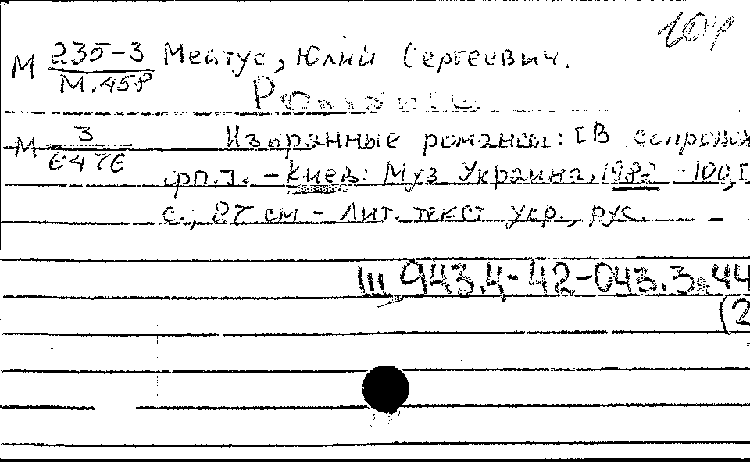 М 235-3 Мейтус, Юлий Сергеевич.
М.458
Романсы
М 3 Избранные романсы: [В сопровож
6476 фп.]. - Киев: Муз Україна, 1982 - 100,[
с.; 27 см - Лит. текст укр., рус.
Ш 943.4-42-043.3 44
(2